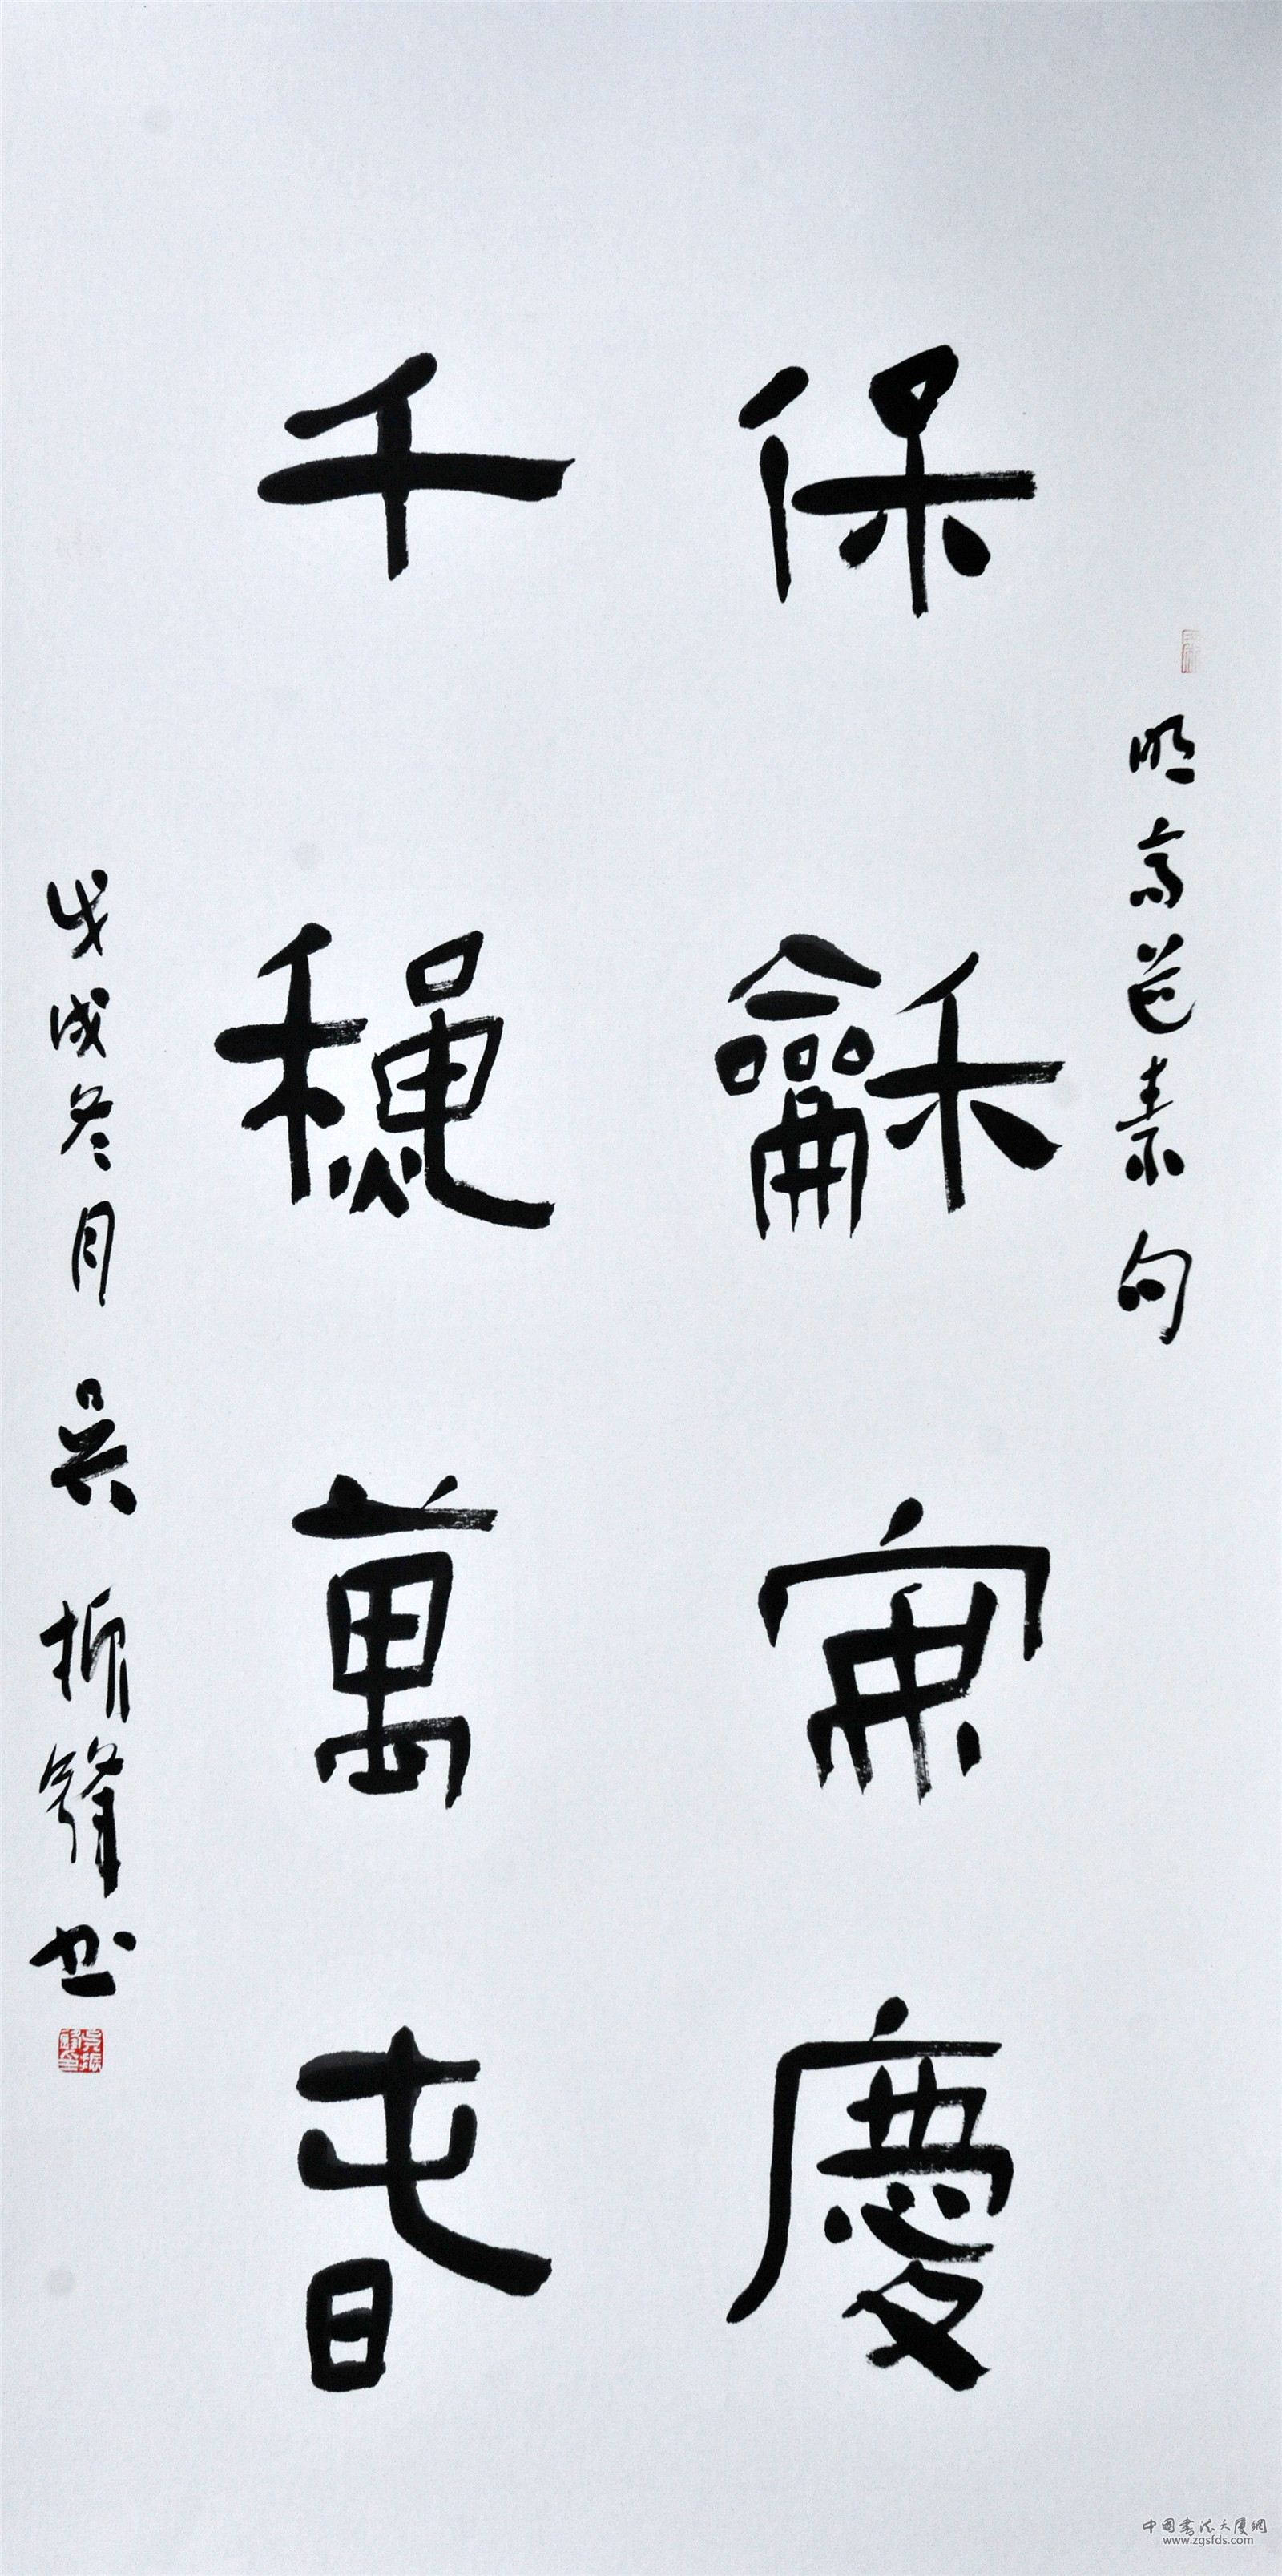 明高素句
保龢慶
千龝萬春
戊戌冬月吴振鋒书
中國書法大厦網
www.zgsfds.com